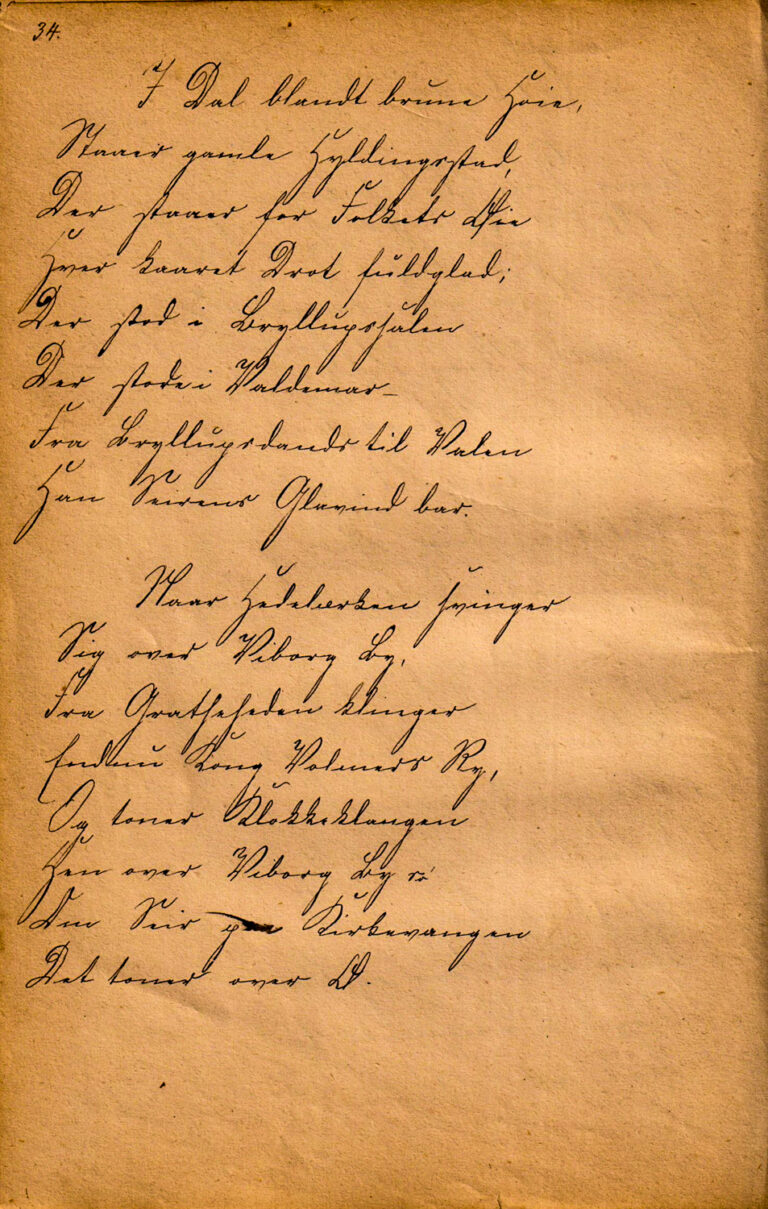 34.
I Dal blandt brune Høie,
Staaer gamle Hyldingsstad,
Der staaer for Folkets Øie
Hver kaaret Drot fuldglad;
Der stod i Bryllupssalen
Der stode i Valdemar-
Fra Bryllupsdands til Valen
Han Seirens Glavind bar.
Naar Hedelærken svinger
Sig over Viborg By,
Fra Gratheheden klinger
Endnu Kong Volmers Ry,
Og toner Klokkeklangen
Hen over Viborg By
Om Seir paa Kirkevangen
Det toner over Ø.